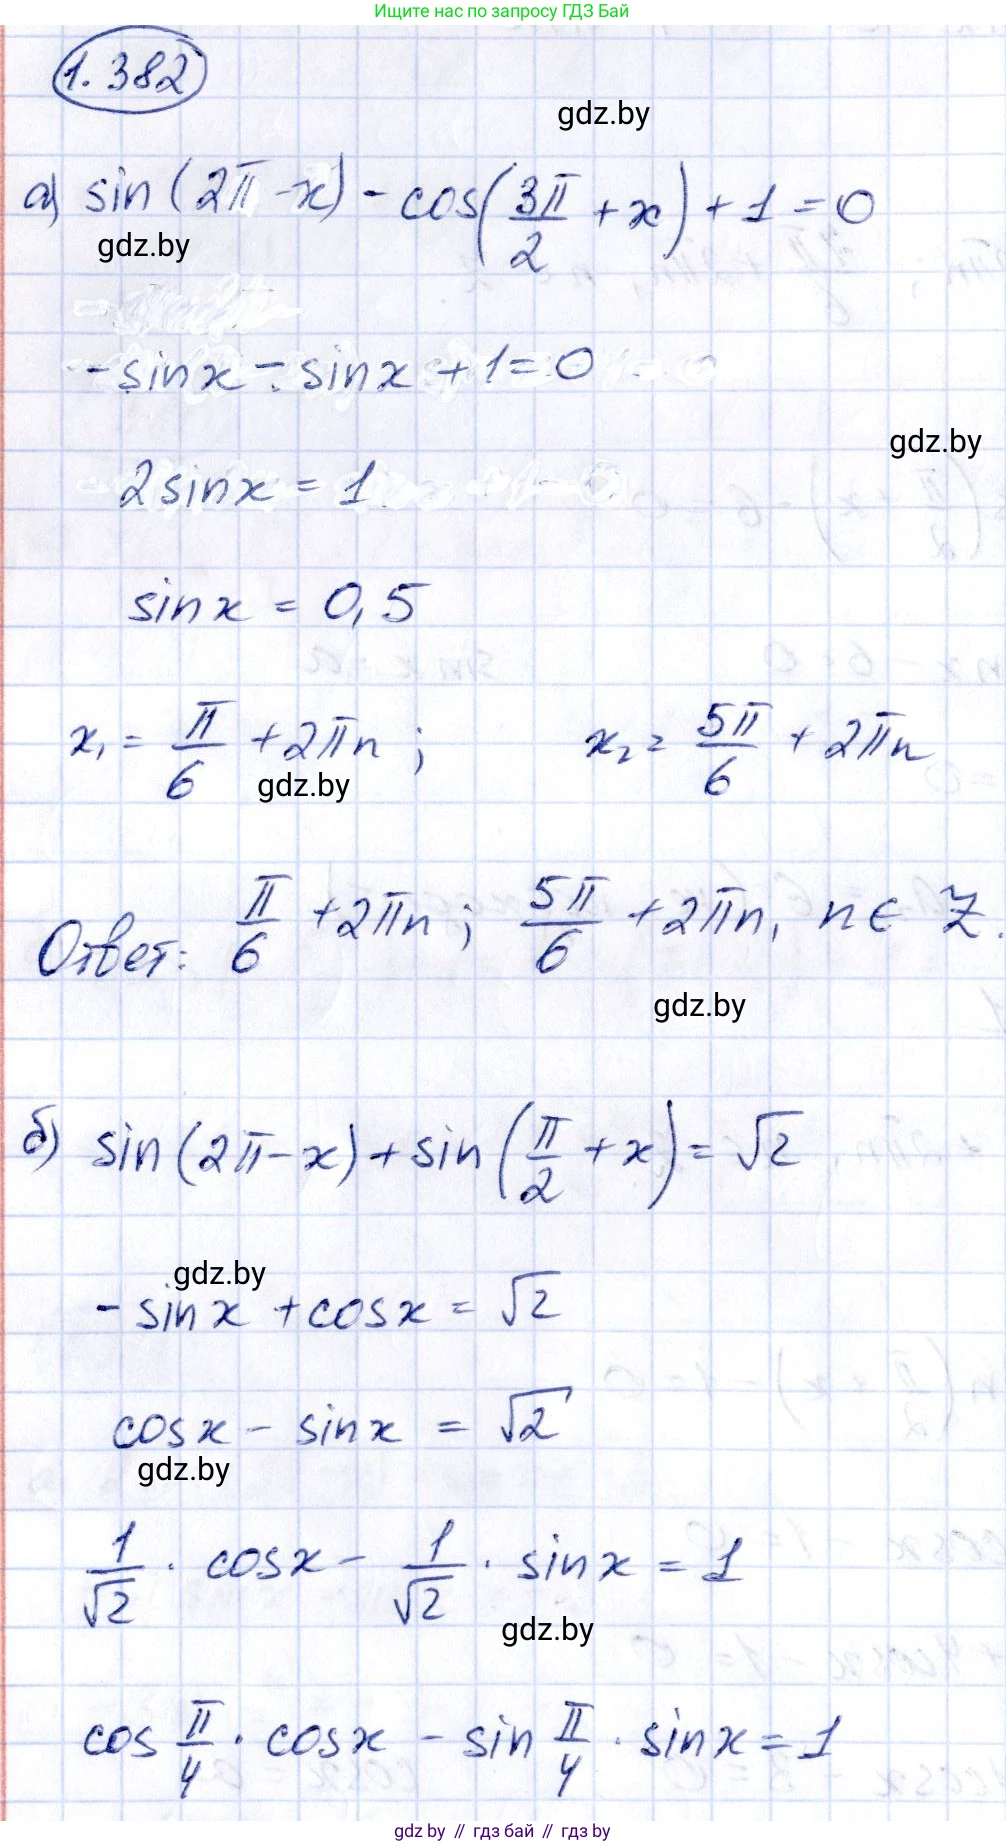 Ищите нас по запросу ГДЗ Бай
1.382
gdz.by
а) sin(2π - x) - cos(3π/2 + x) + 1 = 0
gdz.by
- sinx - sinx + 1 = 0
gdz.by
2sinx = 1
sinx = 0,5
x₁ = π/6 + 2πn ; x₂ = 5π/6 + 2πn
gdz.by
Ответ: π/6 + 2πn ; 5π/6 + 2πn, n ∈ Z.
gdz.by
б) sin(2π - x) + sin(π/2 + x) = √2
gdz.by
- sinx + cosx = √2
cosx - sinx = √2
gdz.by
1/√2 · cosx - 1/√2 · sinx = 1
gdz.by
cos π/4 · cosx - sin π/4 · sinx = 1
gdz by // гдз бай // гдз by